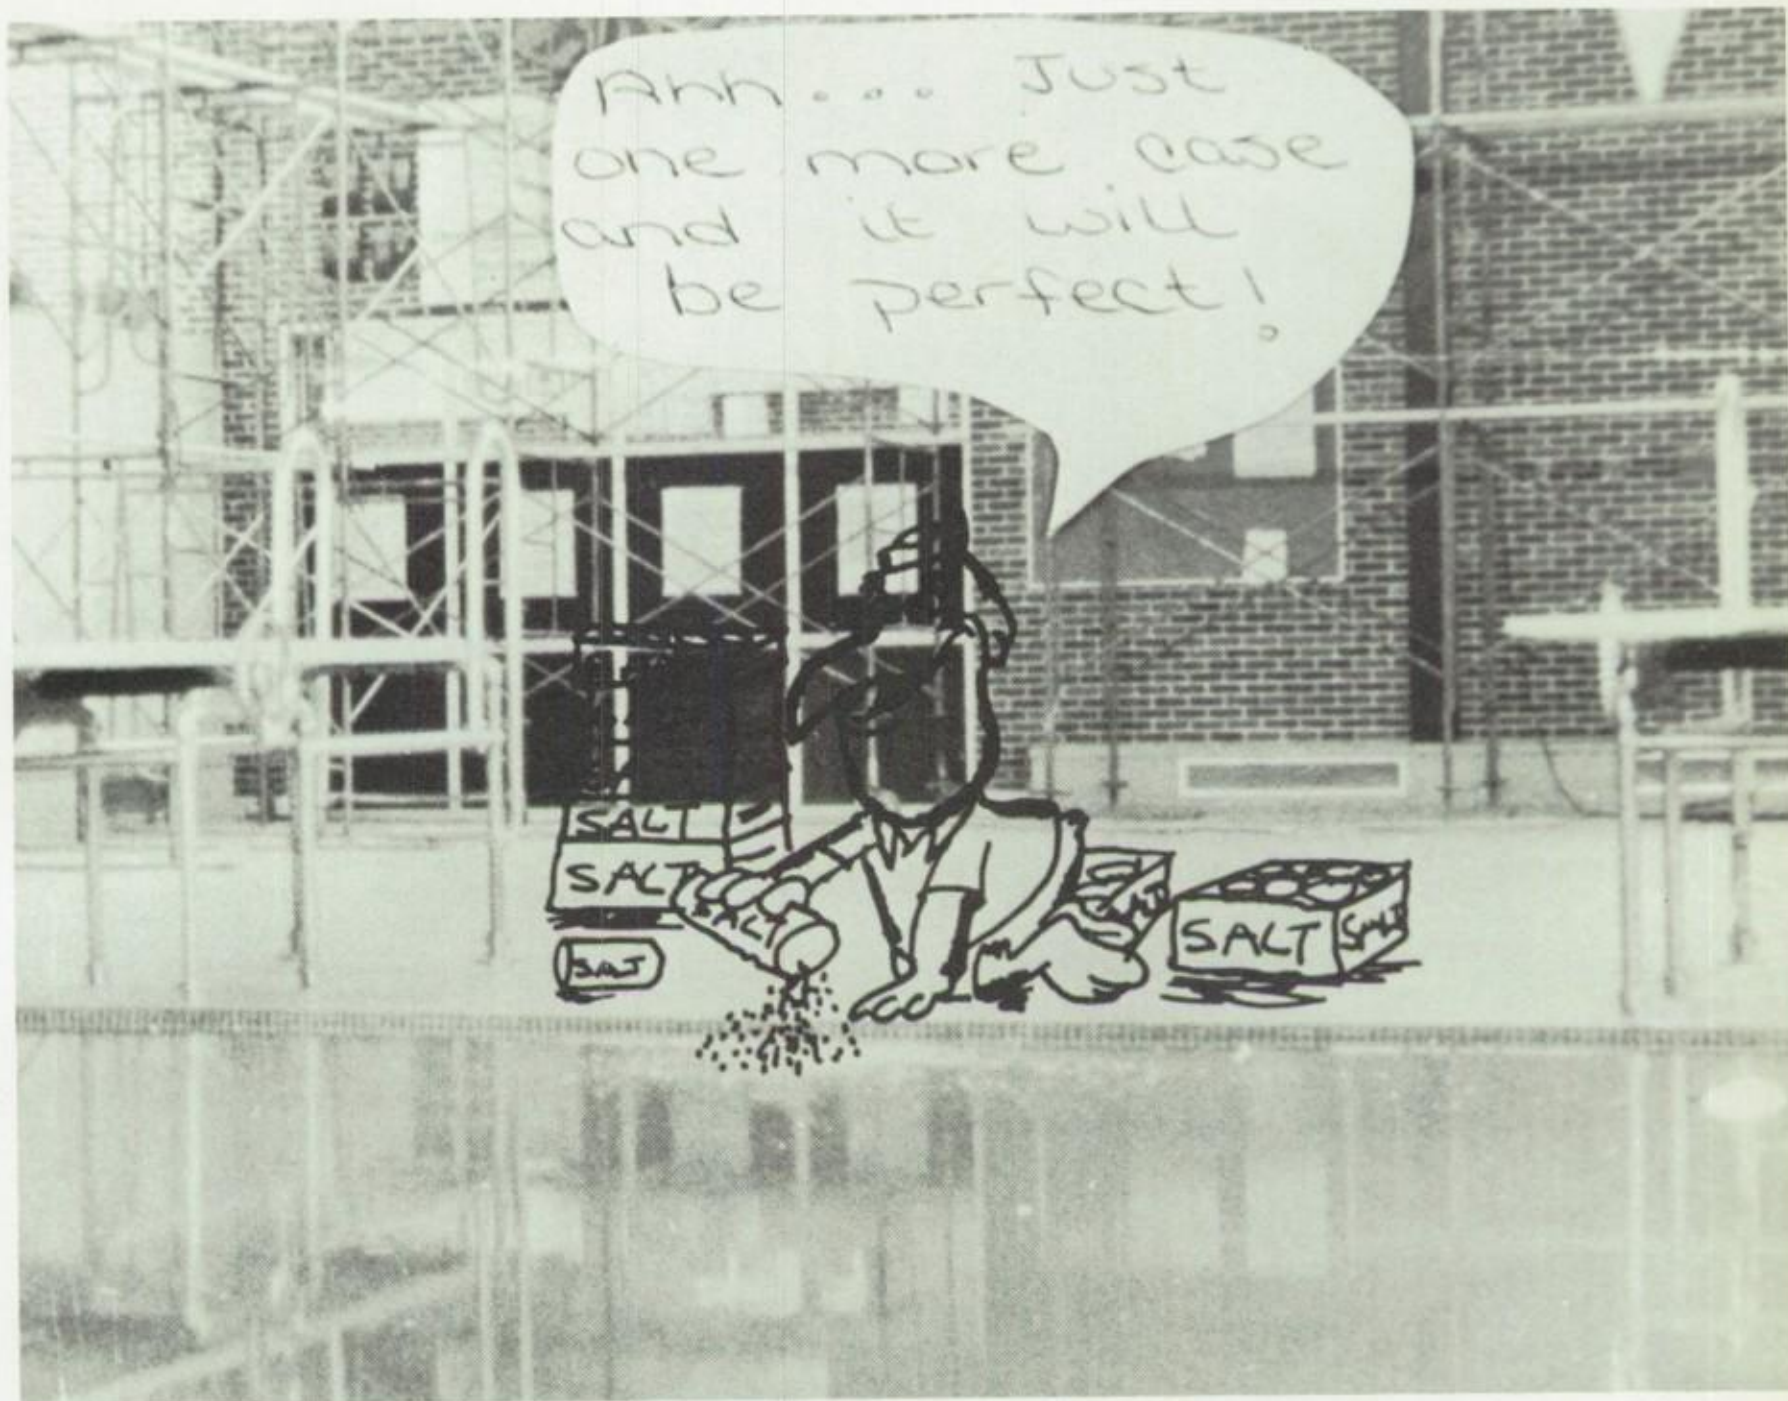 Ahh.... Just
one more case
and it will
be perfect!
SALT
SALT
SALT
SALT
SALT
SALT
SALT